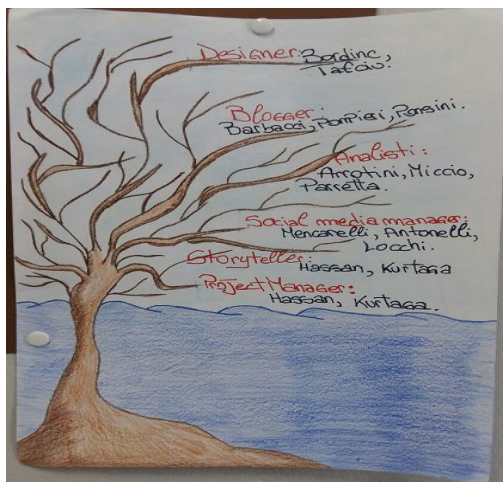 Designer: Bordinc,
Tafciu.
Blogger:
Barbacci, Pompiesi, Ponsini.
Analisti:
Arrotini, Miccio,
Parretta.
Social media manager:
Mencarelli, Antonelli,
Locchi.
Storyteller:
Hassan, Kurtaga
Project Manager:
Hassan, Kurtaga.